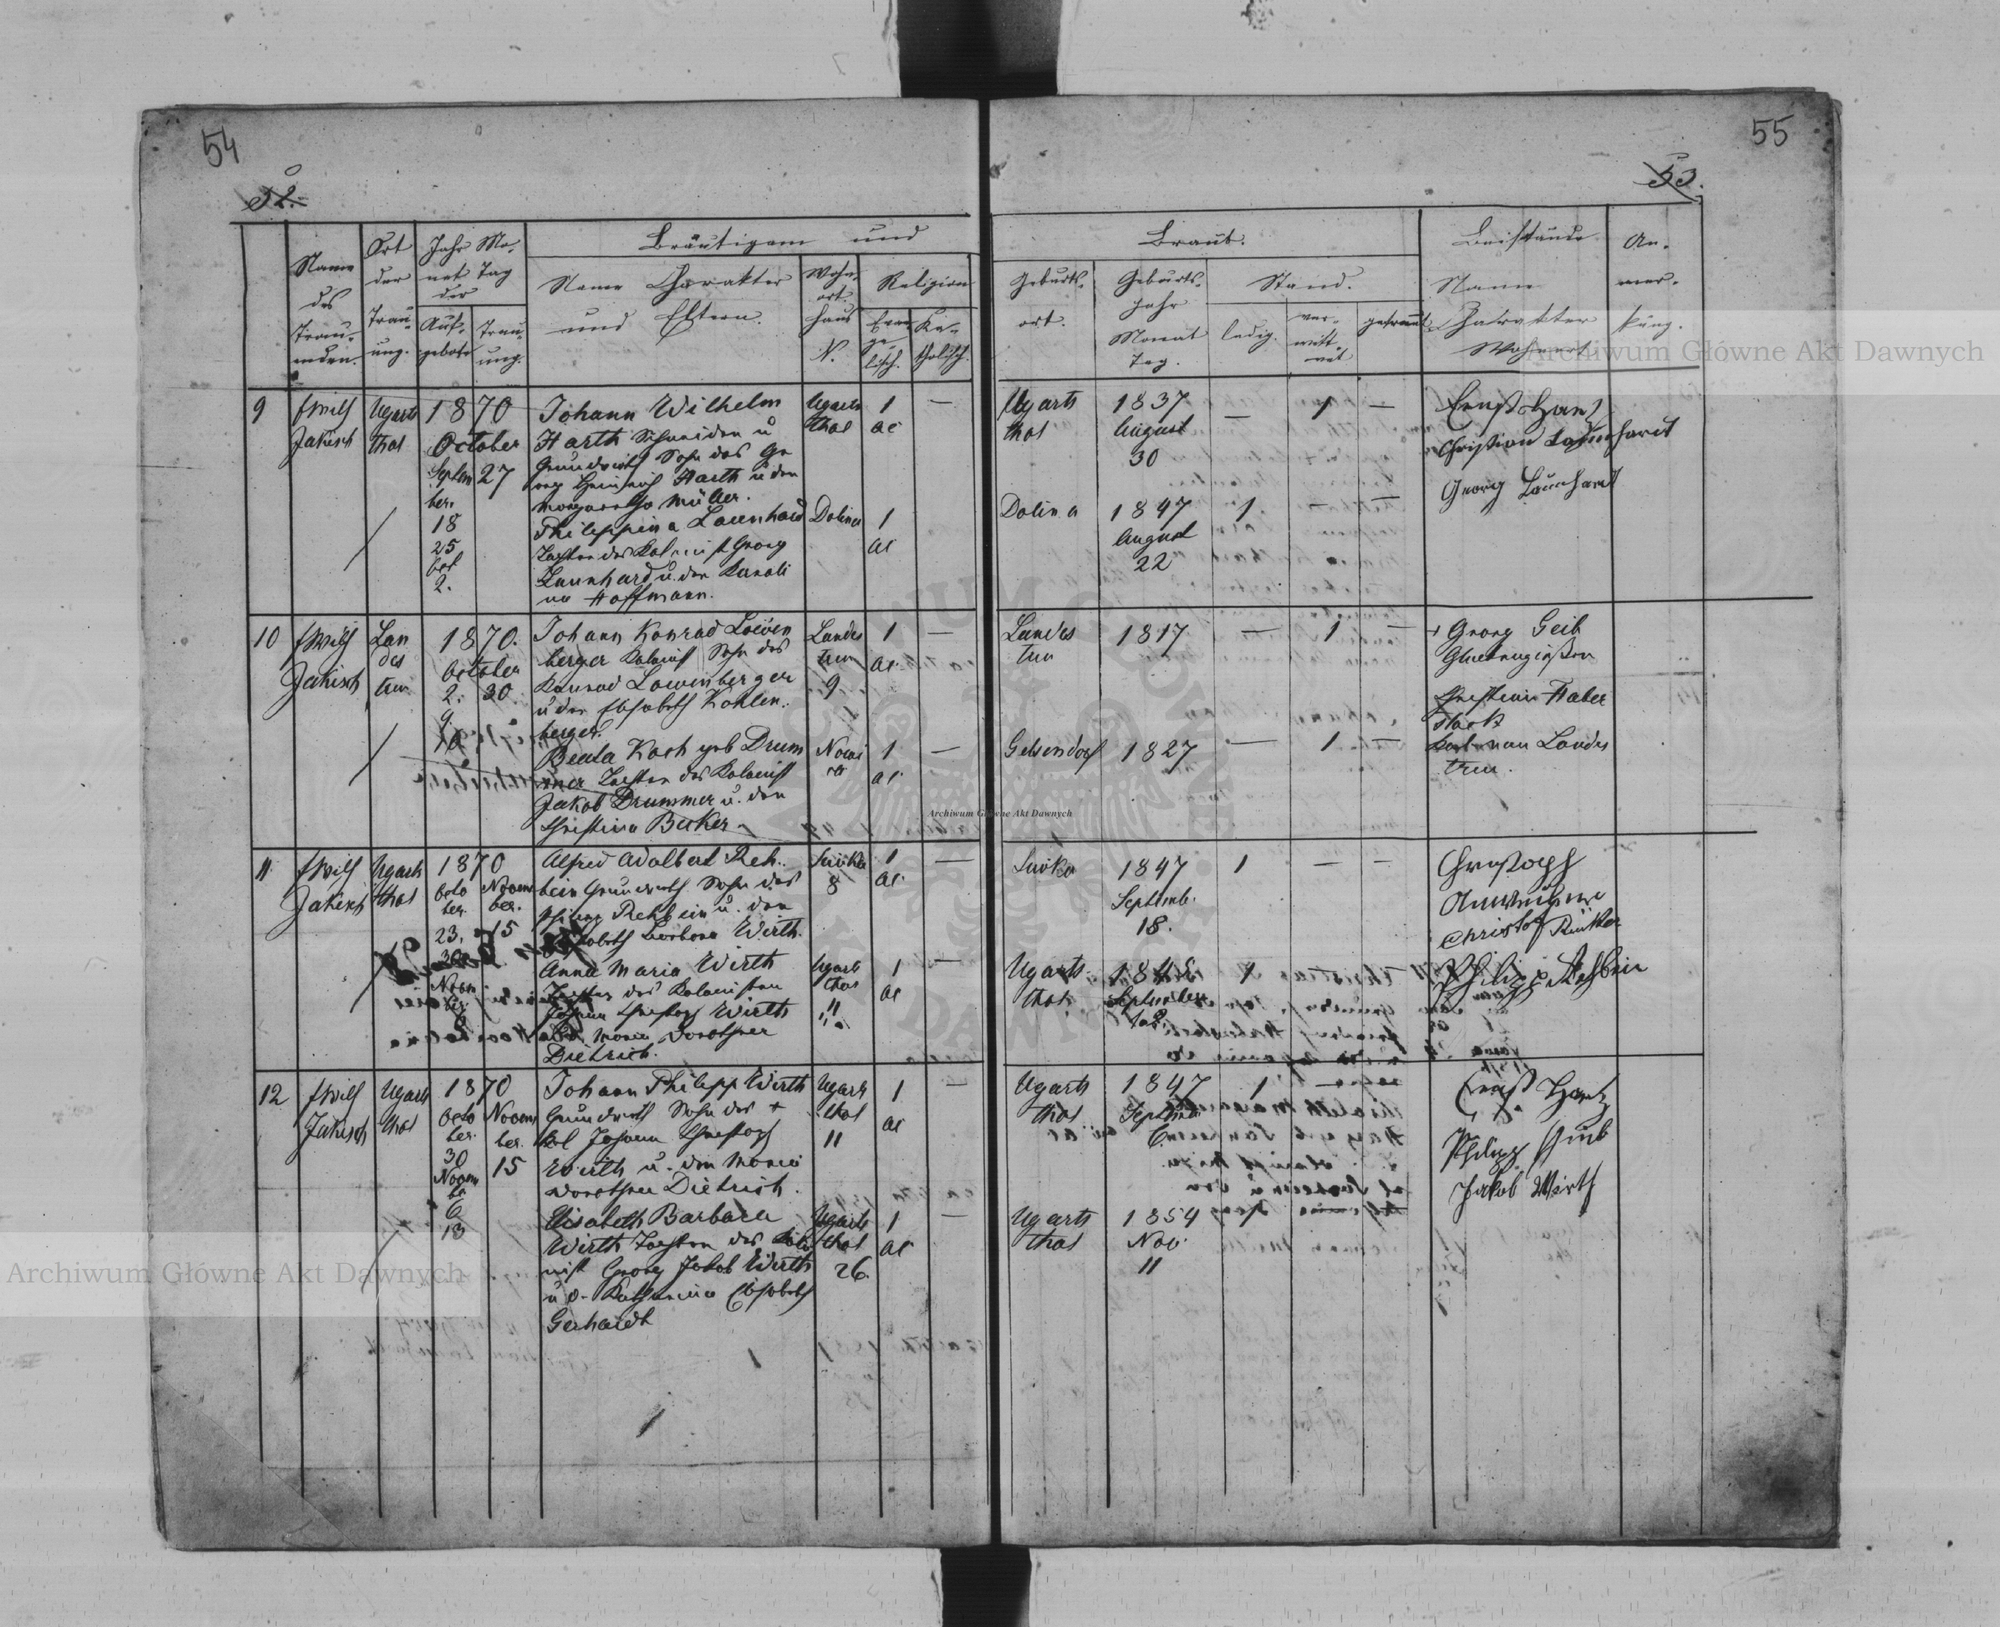 54
52.
Name
des
Trau-
enden.
Ort
der
Trau-
ung.
Jahr Mo-
nat Tag
der
Auf-
gebote
Trau-
ung.
Bräutigam und
Name Charakter
und Eltern.
Wohn-
ort
Haus
N.
Religion
Evan-
ge-
lisch.
Ka-
tholisch.
9
Emil
Jakisch
Ugarts
thal
1870
October
Septem
ber.
18
25
Oct
2.
27
Johann Wilhelm
Harth Schneider u
Grundwirth Sohn des Ge
org Heinrich Harth u der
Margaretha Müller.
Philippina Launhard
Tochter des Kolonist Georg
Launhard u. der Karoli
na Hoffmann.
Ugarts
thal
Dolina
1
ac
—
1
ac
10
Emil
Jakisch
Lan
des
treu
1870.
October
2. 30.
9.
16
Johann Konrad Loewen
berger Kolonist Sohn des
Konrad Loewenberger
u der Elisabeth Kohlen
berger.
Beata Koch geb Drum
mer Tochter des Kolonist
Jakob Drummer u. der
Christina Becker
Landes
treu
9
1
ac.
—
1
ac.
—
11
Emil
Jakisch
Ugarts
thal
1870
Octo
ber.
23.
30.
Novem
ber
6
Novem
ber.
15
Alfred Adalbert Reh-
bein Grundwirth Sohn des
Philipp Rehbein u. der
Elisabeth Barbara Wirth.
Anna Maria Wirth
Tochter des Kolonisten
Johann Christoph Wirth
u. d. Maria Dorothea
Dietrich.
8
Ugarts
thal
11
1
ac.
—
1
ac
—
12
Emil
Jakisch
Ugarts
thal
1870
Octo
ber.
30
Novem
ber
6
13
Novem
ber.
15
Johann Philipp Wirth
Grundwirth Sohn des +
Kol Johann Christoph
Wirth u. der Maria
Dorothea Dietrich.
Elisabeth Barbara
Wirth Tochter des Kolo
nist Georg Jakob Wirth
u d. Katharina Elisabeth
Gerhardt
Ugarts
thal
11
Ugarts
thal
26.
1
ac
—
1
ac
—
55
53.
Braut.
Geburts-
ort.
Geburts-
Jahr
Monat
Tag.
Stand.
ledig.
ver-
witt-
wet
getrennt
Beistände
Name
Charakter
Wohnort
An-
mer-
kung.
Ugarts
thal
1837
August
30
— 1 —
Ernst Harz
Christian Launhardt
Georg Launhardt
Dolina
1847
August
22
1 — —
Landes
treu
1817
— 1 —
Georg Geib
Christian Haber
Landes
treu.
Gelsendorf
1827
— 1 —
1847
Septemb.
18.
1 — —
Christoph
Christof
Philipp Rehbein
Ugarts
thal
September
1
Ugarts
thal
1847
Septem
6.
1 —
Ernst Harz
Philipp
Jakob Wirth
Ugarts
thal
1854
Nov.
11
1
Archiwum Główne Akt Dawnych
Archiwum Główne Akt Dawnych
Archiwum Główne Akt Dawnych